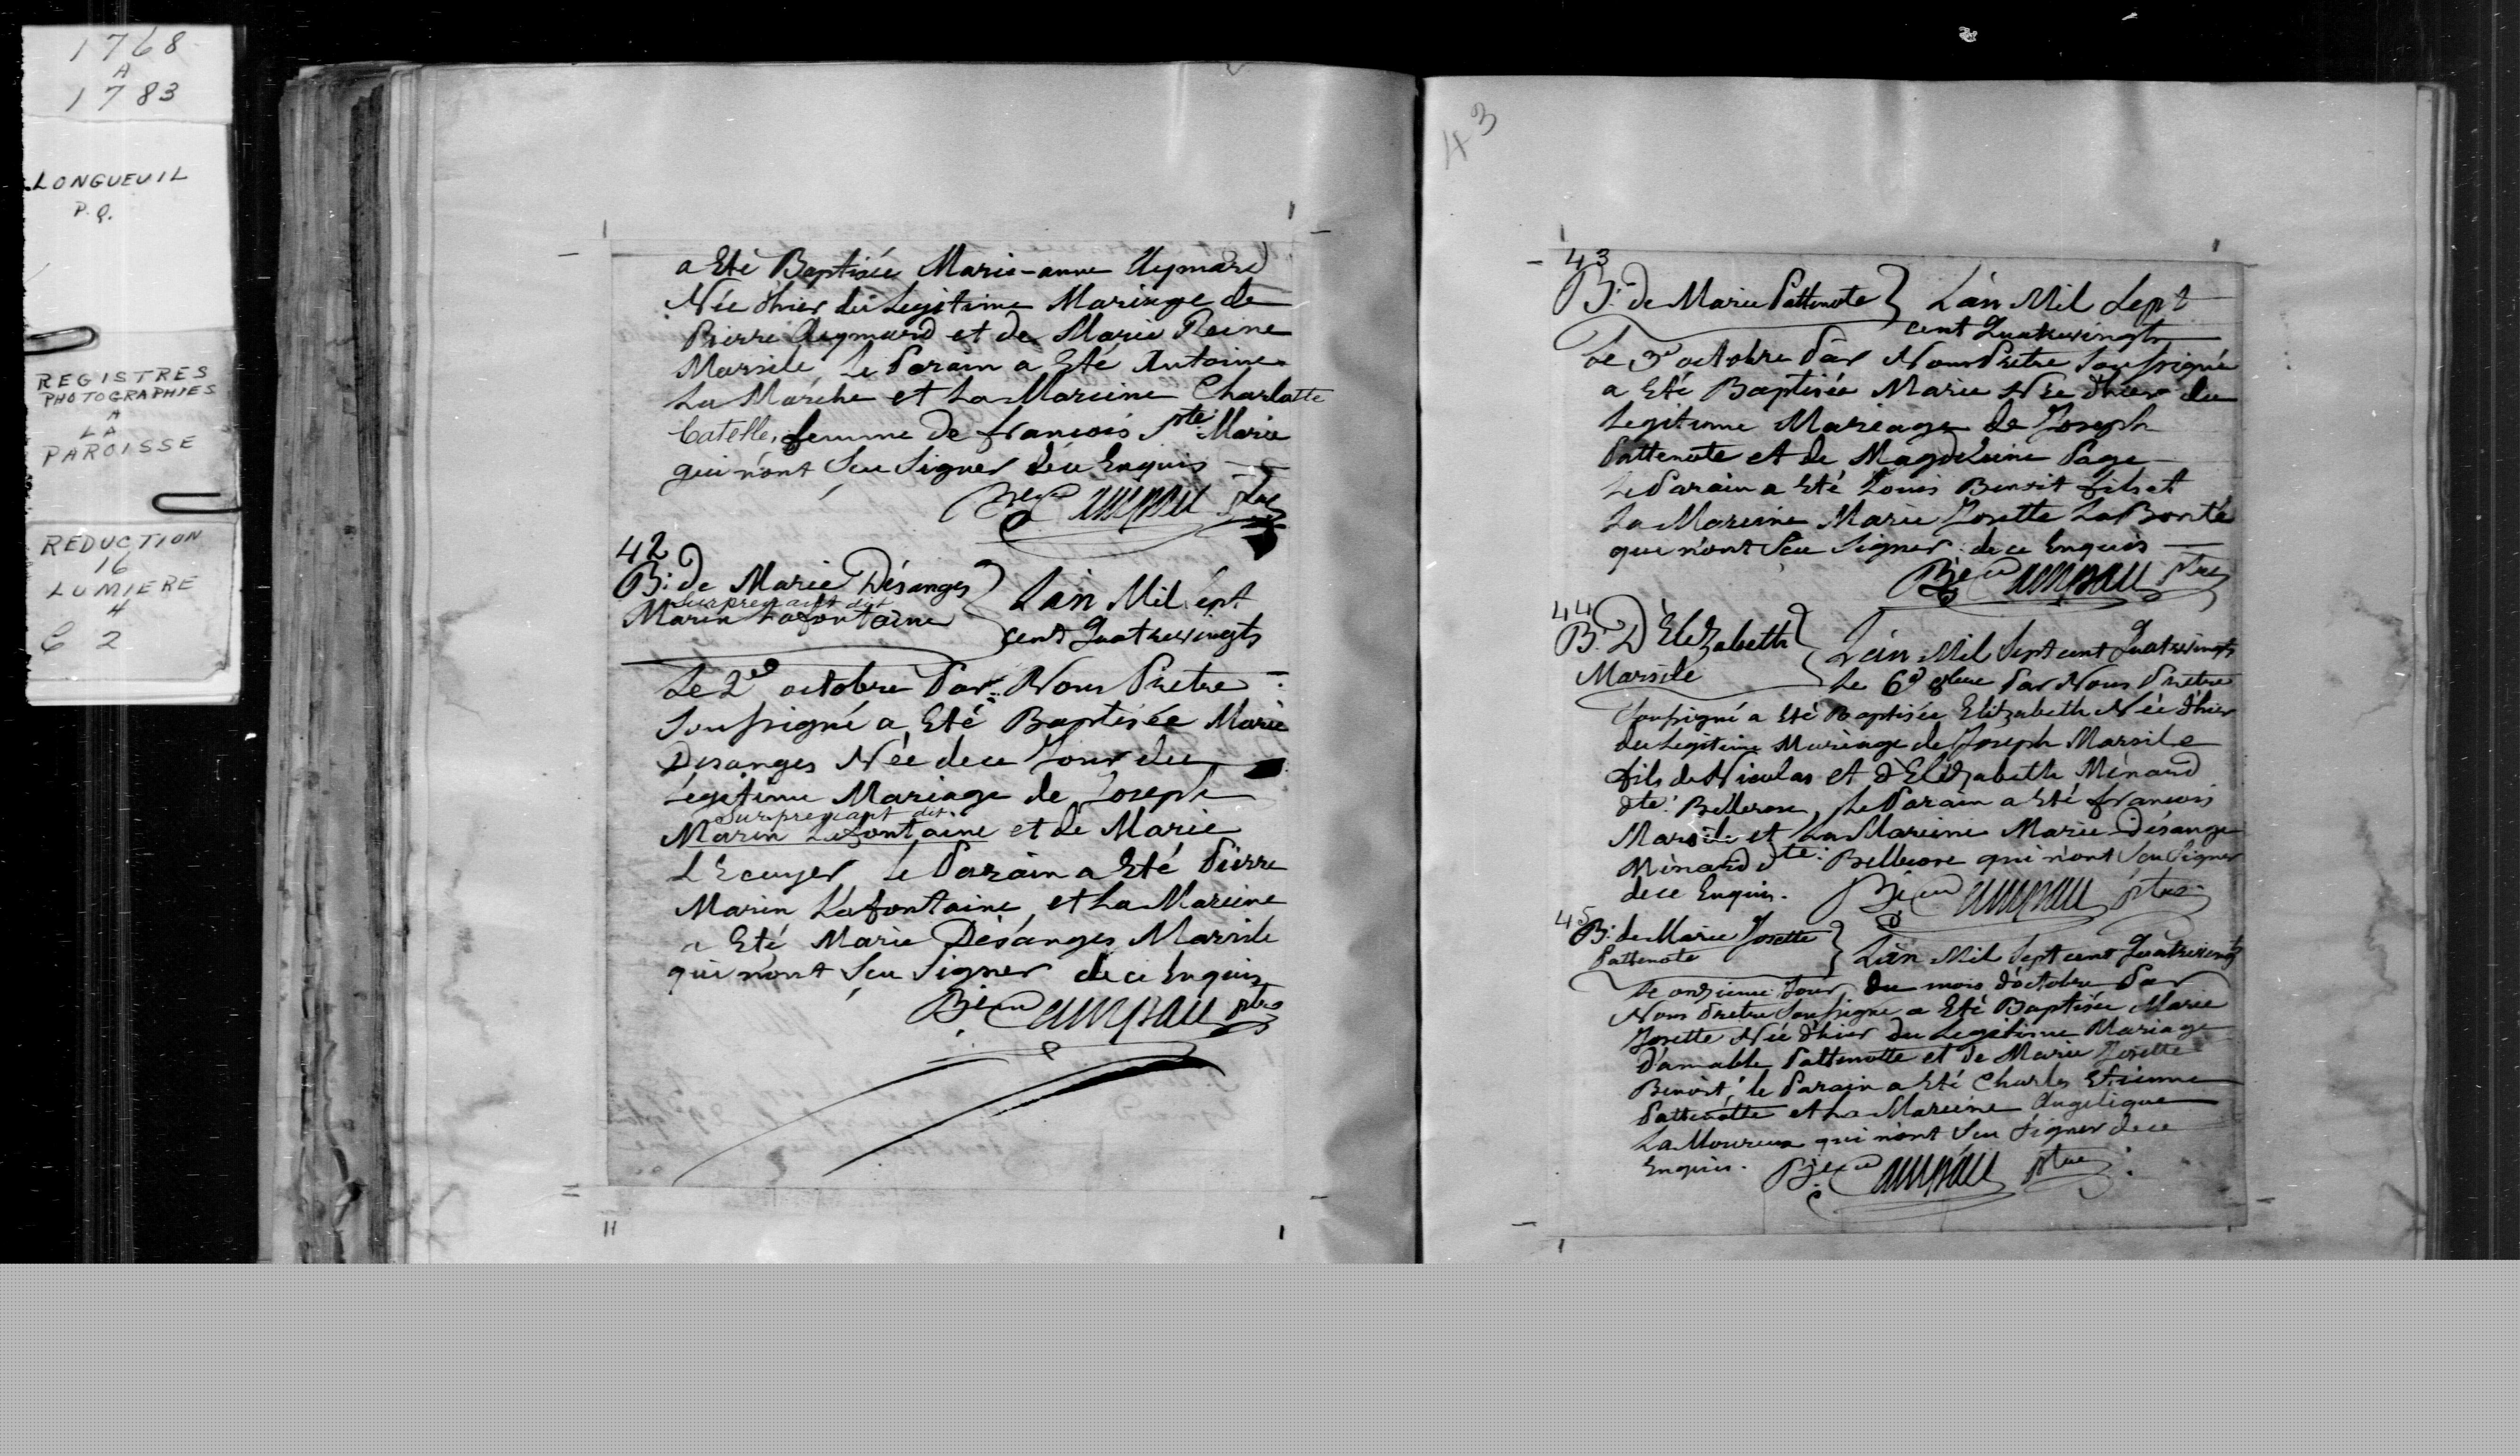 1768
A
1783
LONGUEUIL
P.Q.
REGISTRES
PHOTOGRAPHIES
A
LA
PAROISSE
REDUCTION
16
LUMIERE
4
C 2
a Eté Baptisée Marie-anne Aymard
Née d'hier du Legitime Mariage de
Pierre Aymard et de Marie Reine
Marsile Le Parain a Eté Antoine
La Marche et La Mareine Charlotte
Catelle, femme de francois Ste Marie
qui n'ont Seu Signer de ce Enquis
Bjeu Campau ptre
42
B: de Marie Désanges
Surprenant dit
Marin Lafontaine
L'an Mil Sept
cent Quatrevingts
Le 2e octobre Par Nous Pretre
Soussigné a Eté Baptisée Marie
Desanges Née de ce Jour du
Legitime Mariage de Joseph
Surprenant dit
Marin Lafontaine et de Marie
L'Ecuyer Le Parain a Eté Pierre
Marin Lafontaine, et La Mareine
a Eté Marie Désanges Marsile
qui n'ont Seu Signer de ce Enquis
Bjeu Campau ptre
43
43
B: de Marie Pattenote L'an Mil Sept
cent Quatrevingts
Le 3e octobre Par Nous Pretre Soussigné
a Eté Baptisée Marie Née d'hier du
Legitime Mariage de Joseph
Pattenote et de Magdeleine Page
Le Parain a Eté Louis Benoit fils et
La Mareine Marie Josette LaBonté
qui n'ont Seu Signer de ce Enquis
Bjeu Campau ptre
44
B: D'Elizabeth
Marsile
L'an Mil Sept cent Quatrevingts
Le 6e 8bre Par Nous Pretre
Soussigné a Eté Baptisée Elizabeth Née d'hier
du Legitime Mariage de Joseph Marsile
fils de Nicolas et d'Elizabeth Ménard
dte: Bellerose, Le Parain a Eté francois
Marsile et La Mareine Marie Désange
Ménard dte: Bellerose qui n'ont Seu Signer
de ce Enquis. Bjeu Campau ptre
45
B: de Marie Josette
Pattenote
L'an Mil Sept cent Quatrevingts
Le onzieme Jour du mois d'octobre Par
Nous Pretre Soussigné a Eté Baptisée Marie
Josette Née d'hier du Legitime Mariage
d'amable Pattenotte et de Marie Josette
Benoit, le Parain a Eté Charles Etienne
Pattenotte et La Mareine Angelique
La Moureux qui n'ont Seu Signer de ce
Enquis. Bjeu Campau ptre